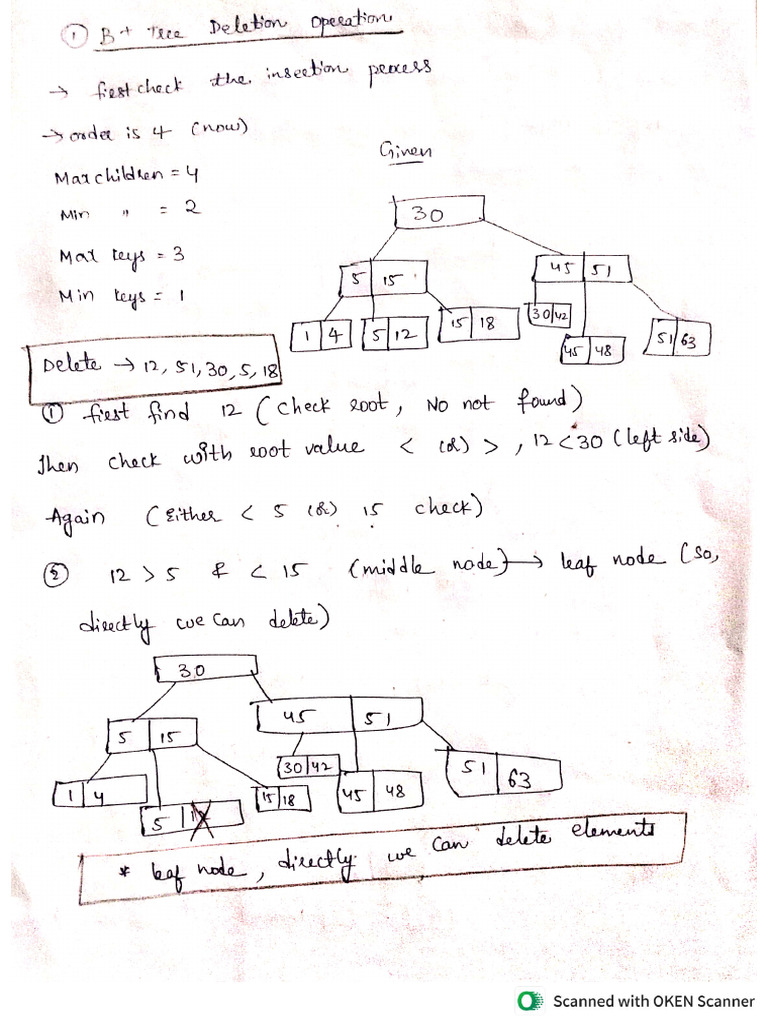 ① B+ Tree Deletion Operation
→ first check the insertion process
→ order is 4 (now)
Max children = 4
Min " = 2
Max keys = 3
Min keys = 1
Given
30
5 | 15
45 | 51
1 | 4
5 | 12
15 | 18
30 | 42
45 | 48
51 | 63
Delete → 12, 51, 30, 5, 18
① first find 12 (check root, No not found)
Then check with root value < (or) > , 12 < 30 (left side)
Again (Either < 5 (or) 15 check)
② 12 > 5 & < 15 (middle node) → leaf node (so,
directly we can delete)
30
5 | 15
45 | 51
1 | 4
5 |
15 | 18
30 | 42
45 | 48
51 | 63
* leaf node, directly we can delete elements
Scanned with OKEN Scanner